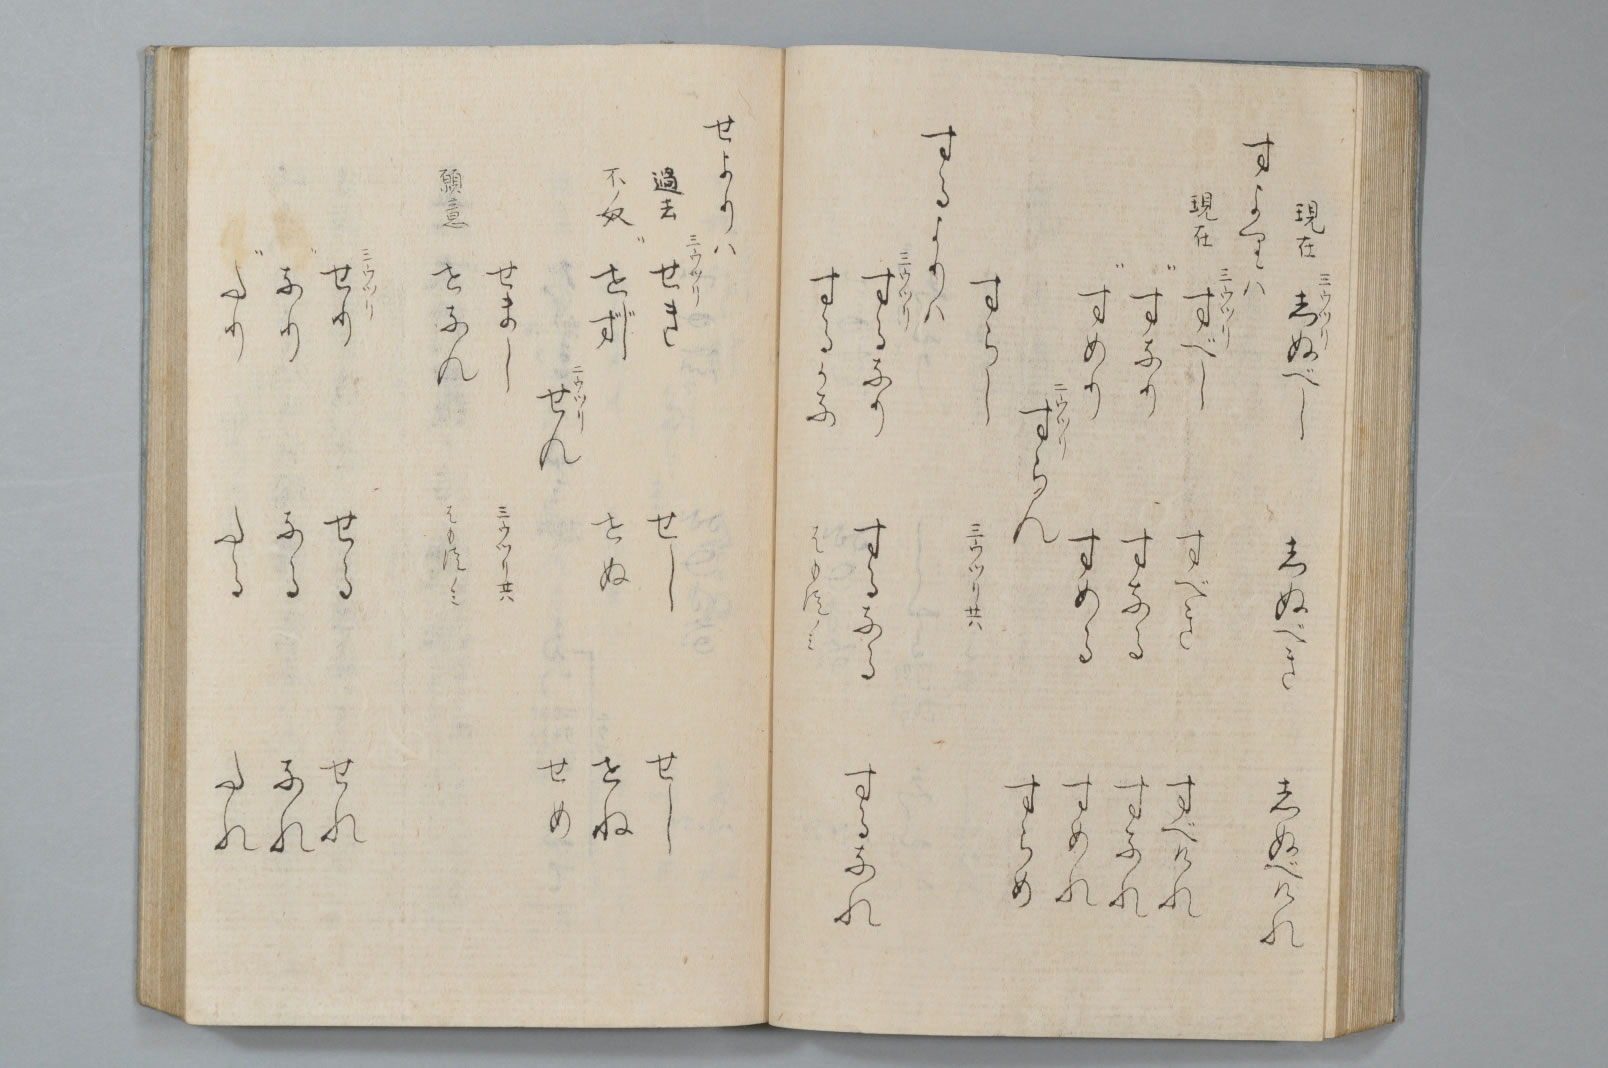 現在 三ウツリ しぬべし しぬべき しぬべけれ
すよりハ
現在 三ウツリ すべし すべき すべけれ
〃 すなり すなる すなれ
〃 すめり すめる すめれ
二ウツリ すらん すらめ
すらし 三ウツリ共ハ
するよりハ
三ウツリ するなり するなる するなれ
するかな
せよりハ
過去 三ウツリ せき せし せし
不ノ奴 〃 せず せぬ せね
二ウツリ せん せめ
せまし 三ウツリ共ハ
願意 せなん
三ウツリ せり せる せれ
〃 なり なる なれ
〃 たり たる たれ